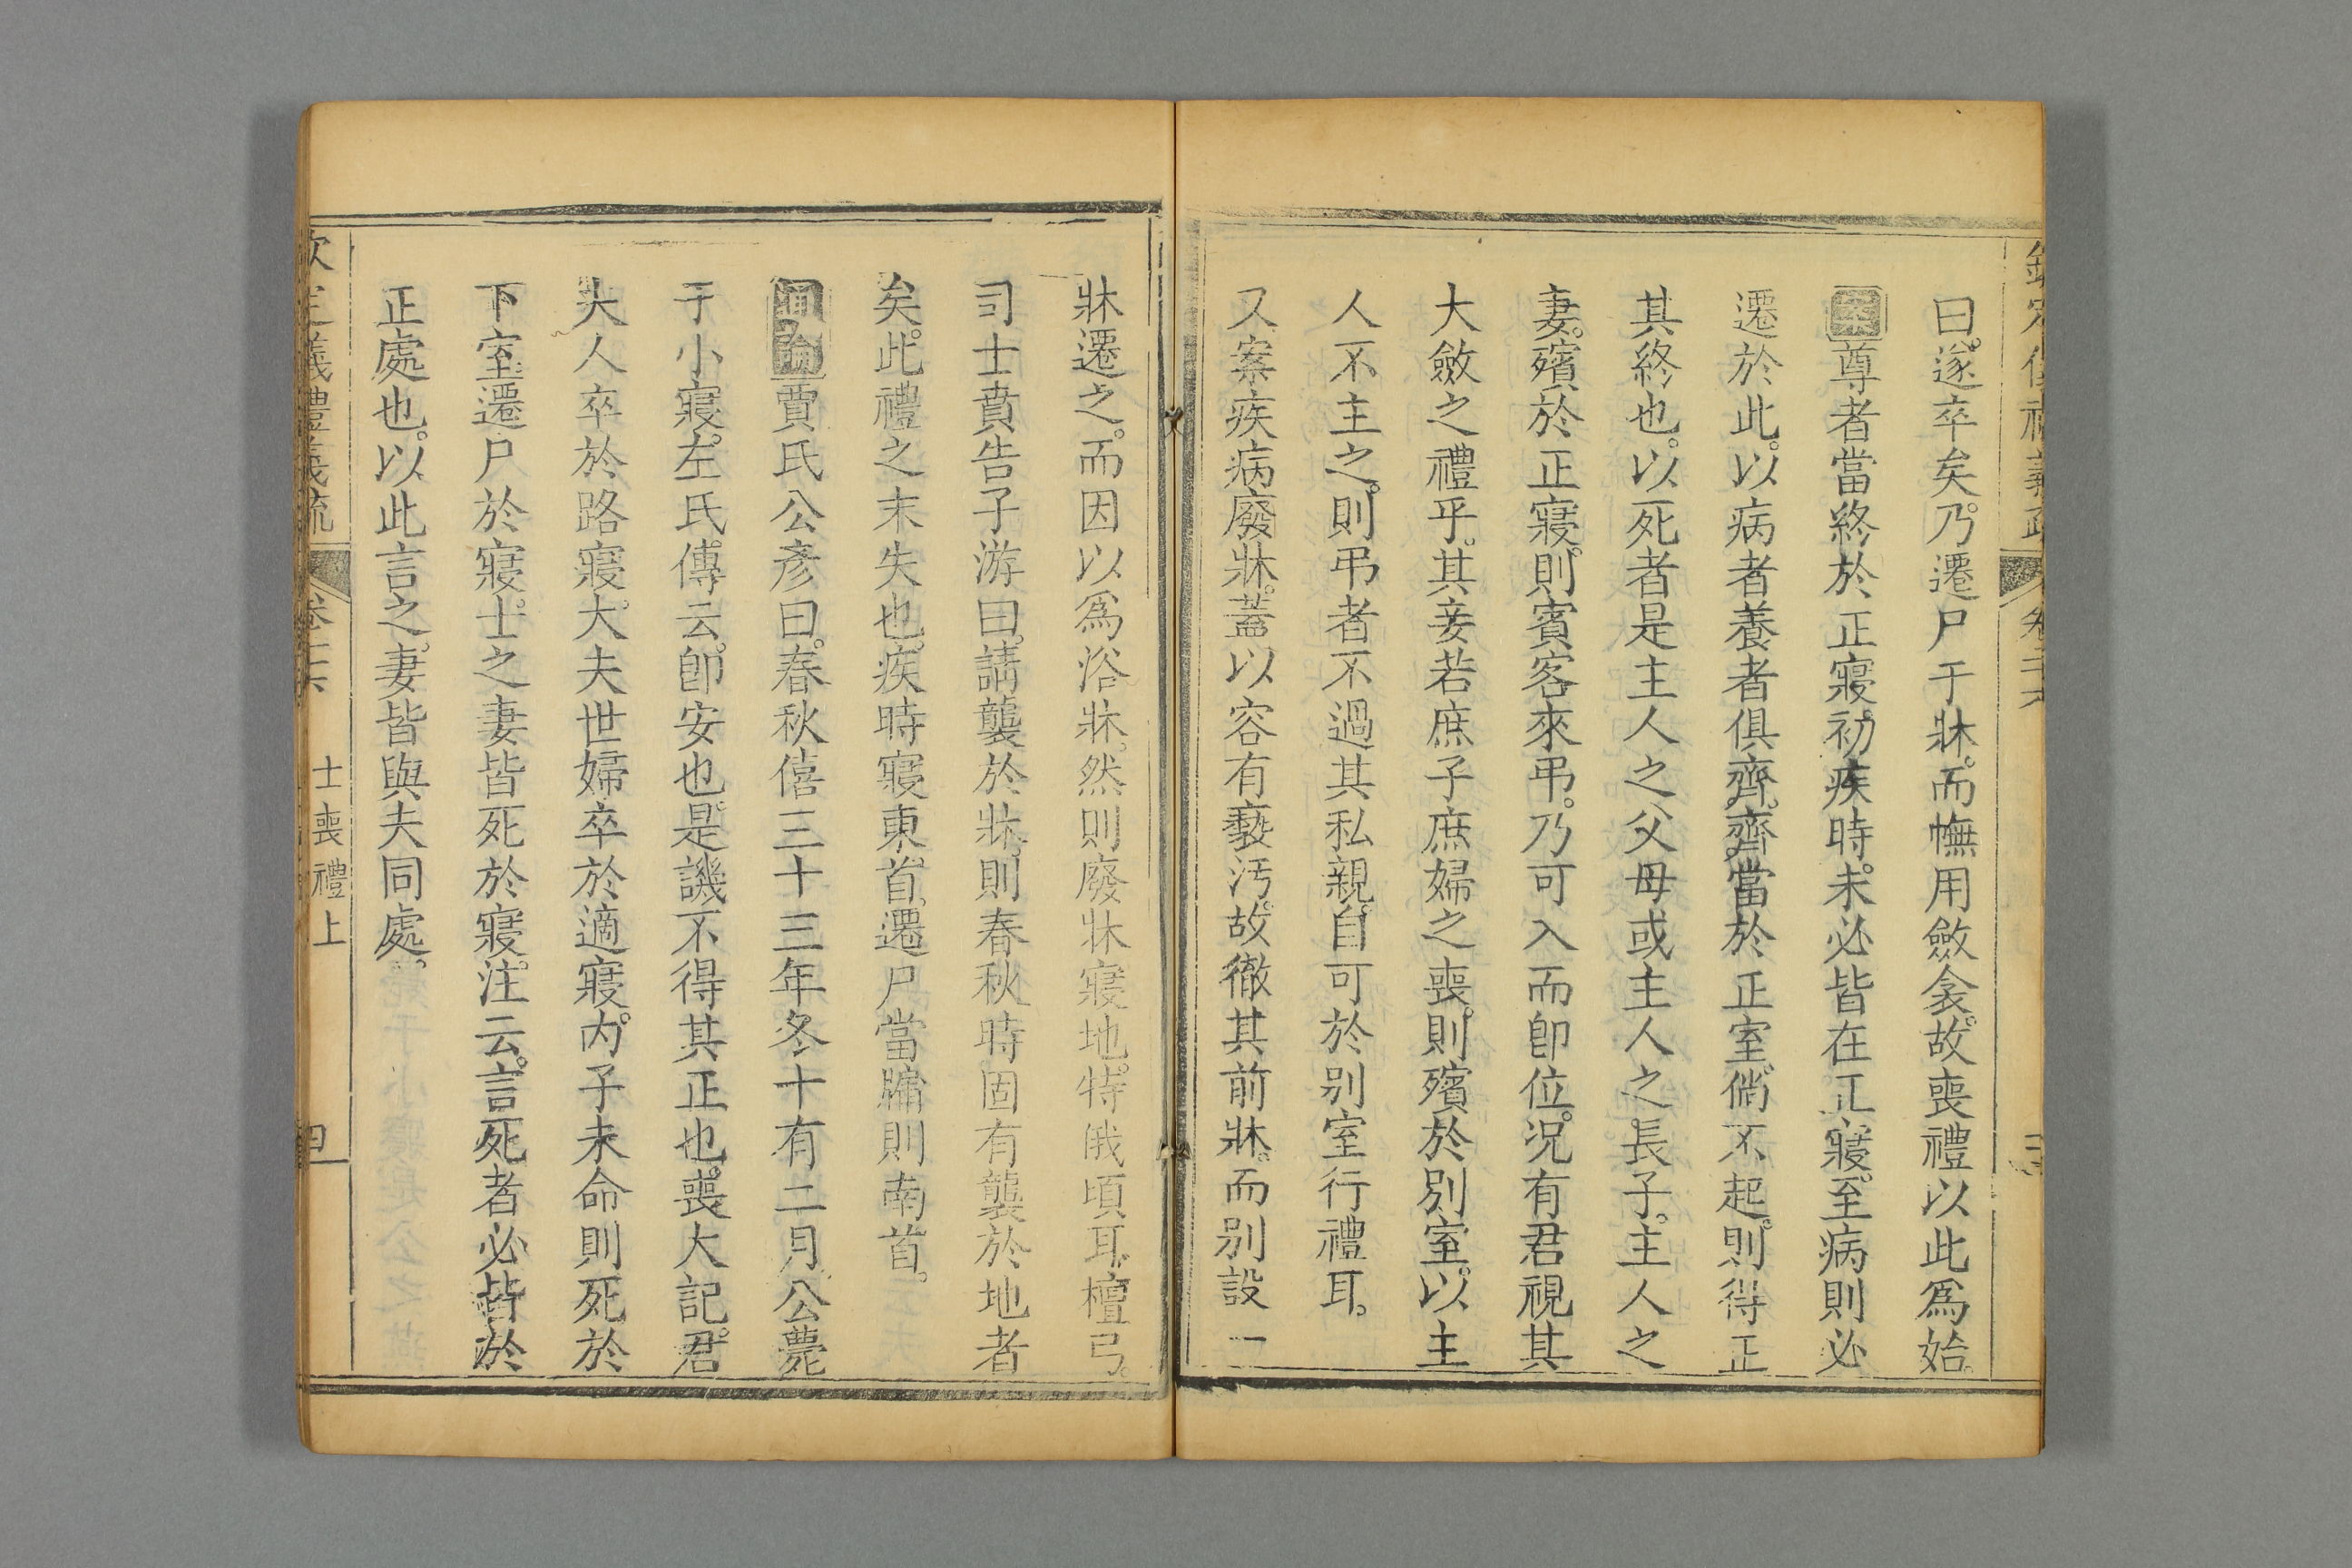 曰。遂卒矣。乃遷尸于牀。而幠用斂衾。故喪禮以此爲始。
案尊者當終於正寢。初疾時。未必皆在正寢。至病則必
遷於此。以病者養者俱齊。齊當於正室。倘不起。則得正
其終也。以死者是主人之父母或主人之長子。主人之
妻。殯於正寢。則賓客來弔。乃可入而卽位。況有君視其
大斂之禮乎。其妾若庶子庶婦之喪。則殯於別室。以主
人不主之。則弔者不過其私親。自可於別室行禮耳。
又案疾病廢牀。蓋以容有褻汚。故徹其前牀。而别設一
牀遷之。而因以爲浴牀。然則廢牀寢地。特俄頃耳。檀弓。
司士賁告子游曰。請襲於牀。則春秋時固有襲於地者
矣。此禮之末失也。疾時寢東首。遷尸當牖則南首。
通論賈氏公彥曰。春秋僖三十三年冬十有二月公薨
于小寢。左氏傳云。卽安也。是譏不得其正也。喪大記。君
夫人卒於路寢。大夫世婦卒於適寢。内子未命則死於
下室。遷尸於寢。士之妻皆死於寢。注云。言死者必皆於
正處也。以此言之。妻皆與夫同處。
欽定儀禮義疏 卷二十六 士喪禮上 四